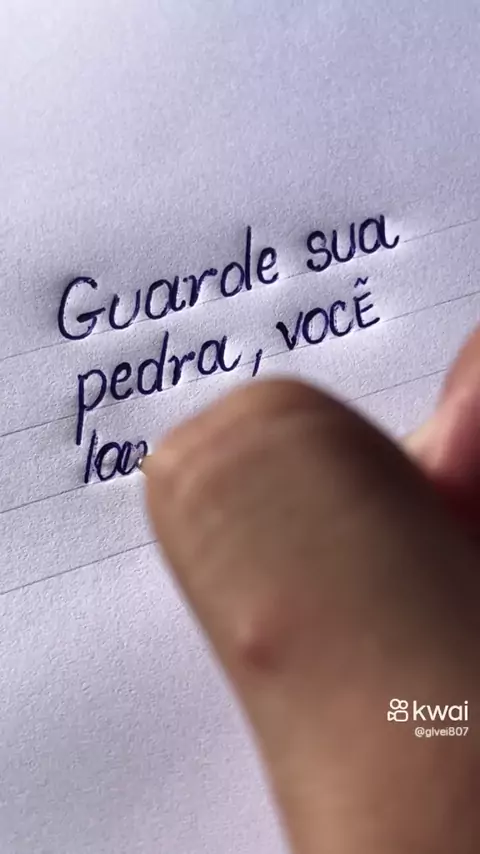 Guarde sua
pedra, você
kwai
@glvei807